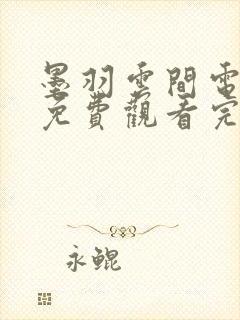 墨羽雲間電
免費觀看完
永鯤